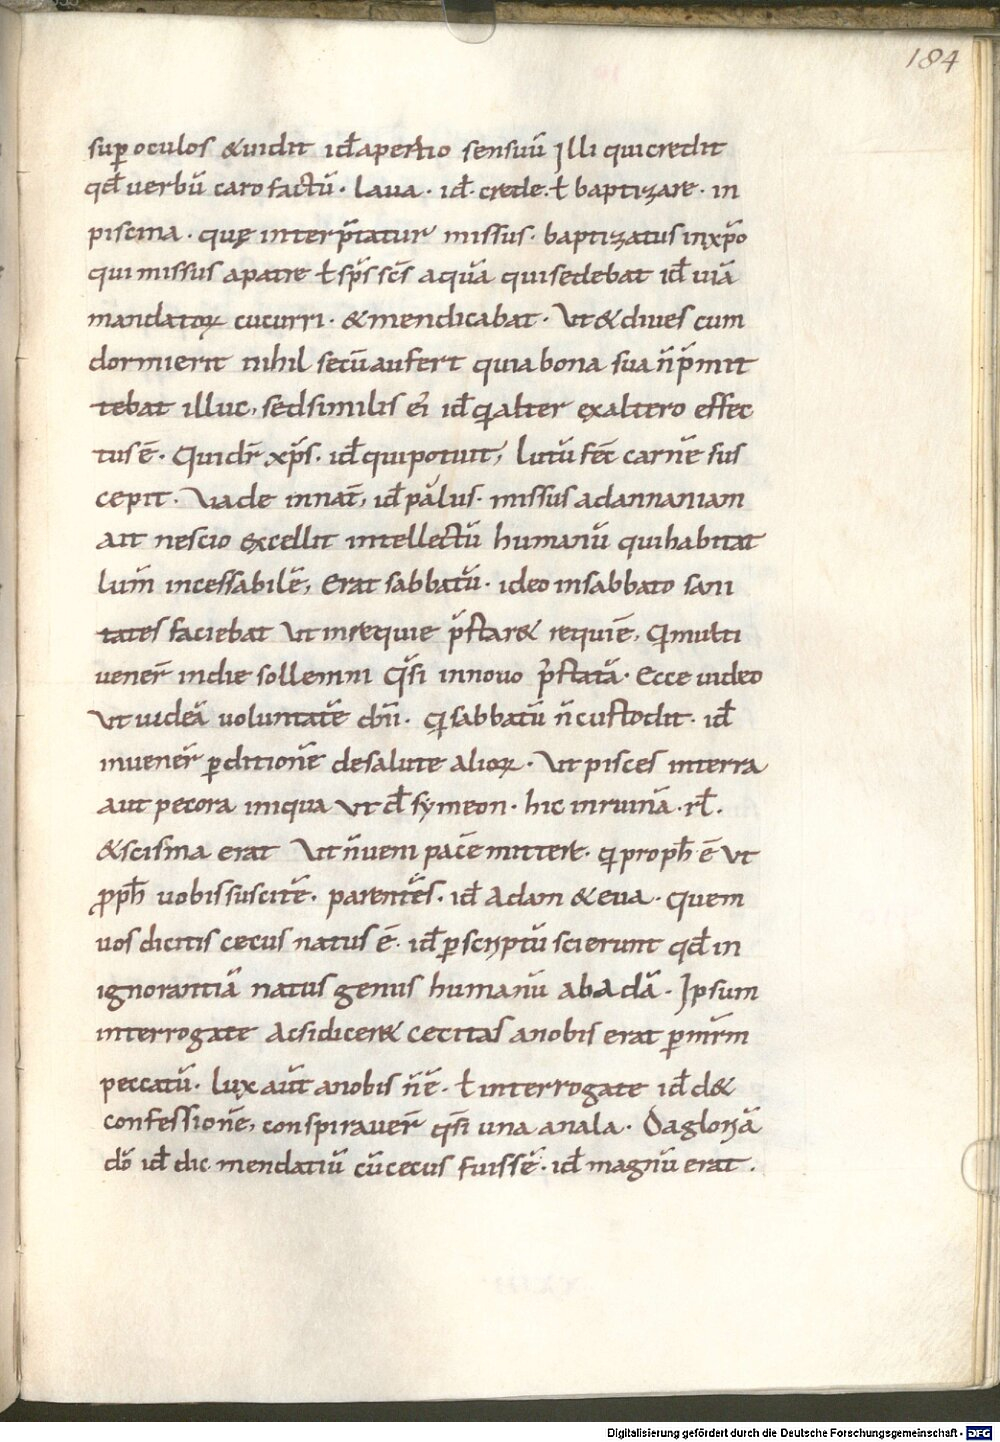 184
suꝑ oculos &uidit id̄ apertio sensuū Illi qui credit
qd̄ uerbū caro factū · Laua · id̄ · crede · ł baptizare · in
piscina · quę interp̄tatur missus · baptizatus inxp̄o
qui missus apatre ł sp̄s sc̄s aquā qui sedebat id̄ uiā
mandatoꝝ cucurri · &mendicabat · Ut & diues cum
dormierit nihil secū aufert quia bona sua n̄ p̄mit
tebat illuc, sed similis ei id̄ qi alter exaltero effec
tus ē · Quidr̄ xp̄s · id̄ qui potuit, lutū fec̄ carnē sus
cepit · Uade innat̄, id̄ paulus · missus adannaniam
ait nescio excellit intellectū humanū qui habitat
lum̄ incessabilē, Erat sabbatū · ideo insabbato sani
tates faciebat Ut inrequie p̄star& requiē, Qi multi
uener̄ indie sollemni Qsi innouo p̄stata · Ecce uideo
Ut uideā uoluntatē dn̄i · qi sabbatū n̄ custodit · id̄
inuener̄ ꝑditionē desalute alioꝝ · Ut pisces interra
aut pecora iniqua Ut d̄ symeon · hic inruinā · rł ·
&scisma erat Ut n̄ ueni pacē mittere · qi proph̄ ē Ut
ꝓph̄ uobis suscitē · parentes · id̄ Adam & eua · Quem
uos dicitis cecus natus ē · id̄ ꝑ scriptū scierunt qd̄ in
ignorantiā natus genus humanū ab adā · Ipsum
interrogate Acsi dicer& cecitas anobis erat ꝑ nr̄m
peccatū · Lux aut̄ anobis n̄ ē · ł interrogate id̄ d&
confessionē, conspirauer̄ qsi una anala · Da gloriā
dō id̄ dic mendatiū cū cecus fuissē · id̄ magnū erat ·
Digitalisierung gefördert durch die Deutsche Forschungsgemeinschaft - DFG